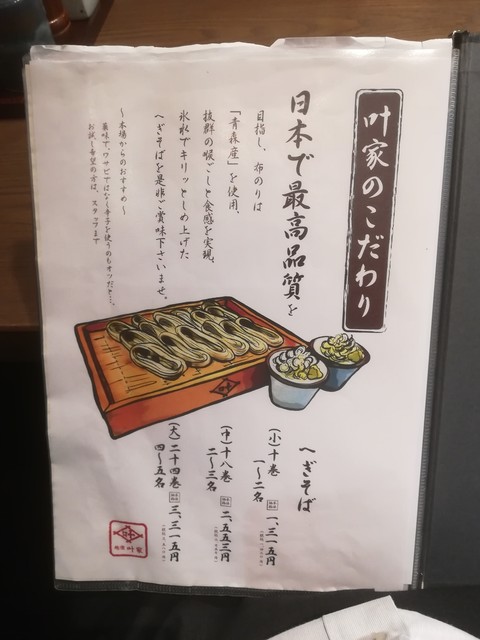 叶家のこだわり
日本で最高品質を
目指し、布のりは
「青森産」を使用。
抜群の喉ごしと食感を実現。
氷水でキリッとしめ上げた
へぎそばを是非ご賞味下さいませ。
～本場からのおすすめ～
薬味で、ワサビではなく辛子を使うのもオツだと…。
お試し希望の方は、スタッフまで
へぎそば
(小)十巻
一～二名
一、三一五円
(中)十八巻
二～三名
二、五五三円
(大)二十四巻
四～五名
三、三一五円
叶家